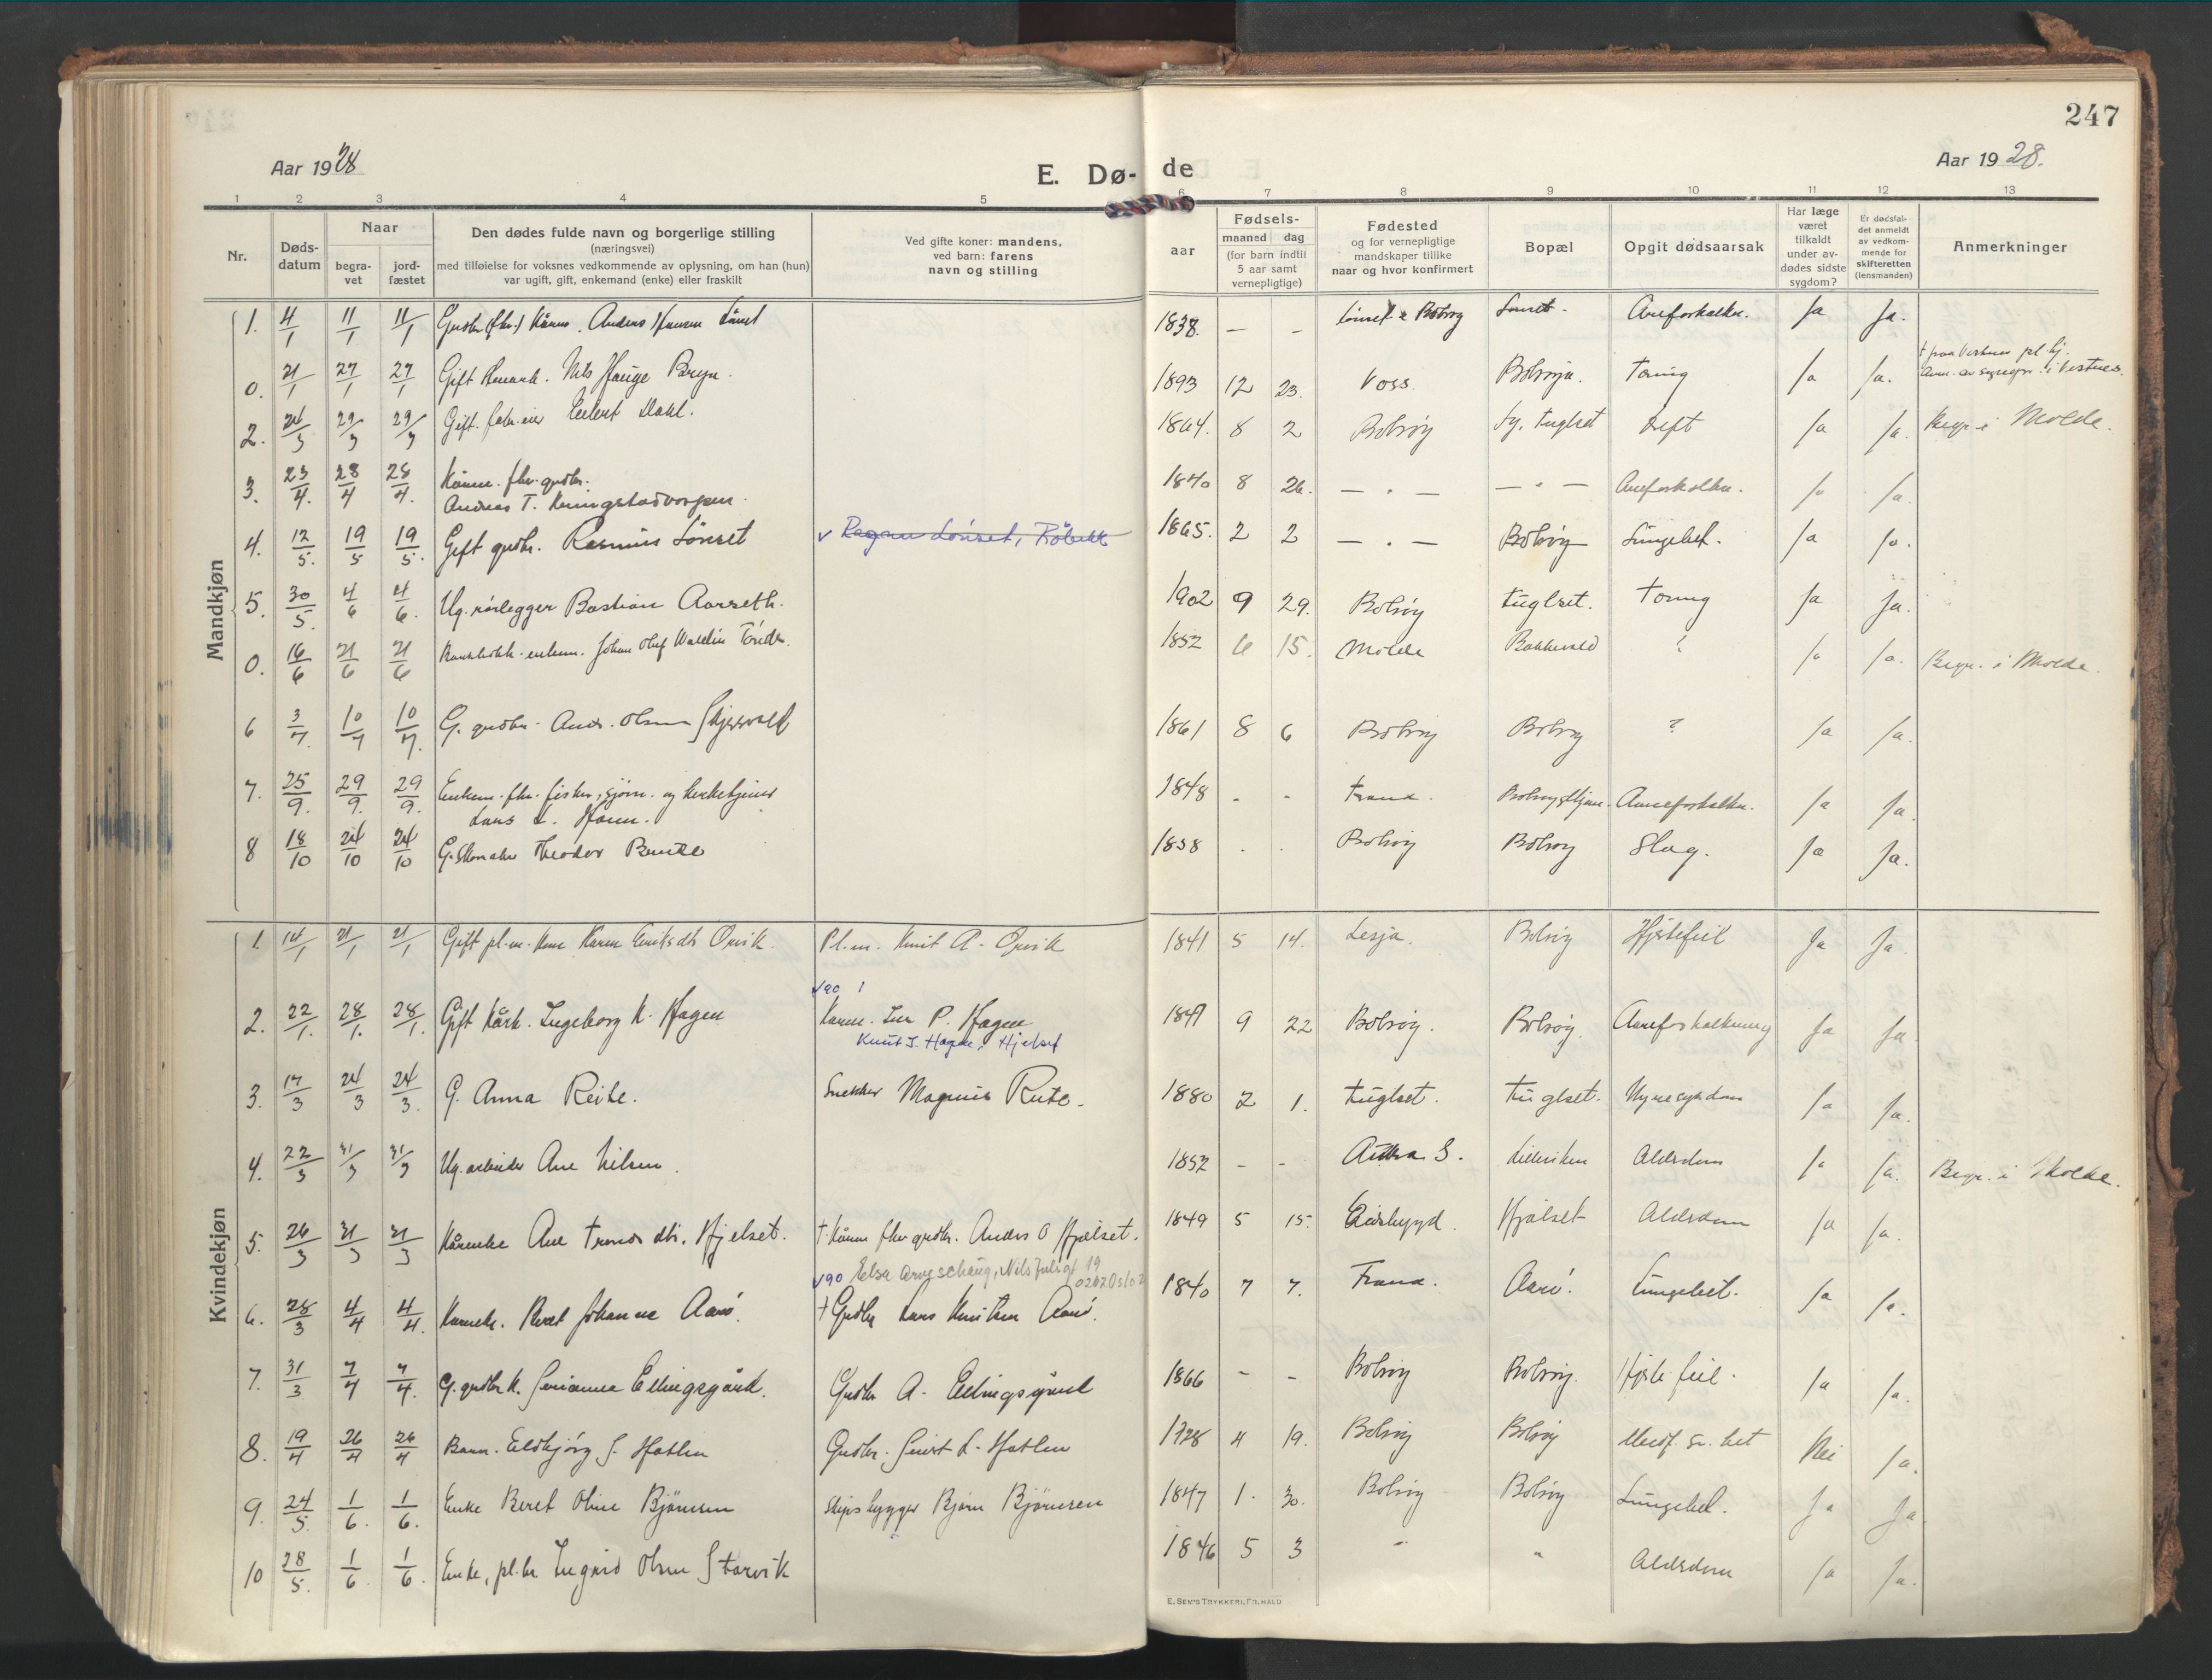 247
Aar 1928
E. Dø-
de
Aar 1928.
1 2 3 4 5 6 7 8 9 10 11 12 13
Nr.
Døds-
datum
Naar
begra-
vet
jord-
fæstet
Den dødes fulde navn og borgerlige stilling
(næringsvei)
med tilføielse for voksnes vedkommende av oplysning, om han (hun)
var ugift, gift, enkemand (enke) eller fraskilt
Ved gifte koner: mandens,
ved barn: farens
navn og stilling
Fødsels-
aar
maaned dag
(for barn indtil
5 aar samt
vernepligtige)
Fødested
og for vernepligtige
mandskaper tillike
naar og hvor konfirmert
Bopæl
Opgit dødsaarsak
Har læge
været
tilkaldt
under av-
dødes sidste
sygdom?
Er dødsfal-
det anmeldt
av vedkom-
mende for
skifteretten
(lensmanden)
Anmerkninger
Mandkjøn
1. 4/1 11/1 11/1 Anders Hansen Lønset 1838. — — Lønset Bolsøy Lønset. Aareforkalkn. Ja Ja.
0. 21/1 27/1 27/1 Gift Nils Hauge Bryn. 1893 12 23. Voss. Bolsøya. Tæring Ja Ja.
2. 24/3 29/3 29/3 Gift fabr.eier Eilert Dahl. 1864. 8 2 Bolsøy Kræft Ja Ja. Begr. i Molde.
3. 23/4. 28/4 28/4. Kårm. fhv. grdbr.
Andreas T. 1840 8 26. — " — — " — Aareforkalkn. Ja Ja.
4. 12/5. 19/5 19/5. Gift grdbr. Rasmus Lönset v Ragnar Lönset, Röbekk 1865. 2 2 — " — Bolsøy Lungebet. Ja Ja.
5. 30/5. 4/6 4/6. Ug. rörlegger Bastian Aarseth. 1902 9 29. Bolsøy Kuglset. Tæring Ja Ja.
0. 16/6 21/6 21/6 enkem. Johan Oluf 1852 6 15. Molde ? Ja Ja. Begr. i Molde.
6 3/7. 10/7 10/7. G. grdbr. Anders Olsen 1861 8 6 Bolsøy Bolsøy ? Ja Ja.
7. 25/9. 29/9. 29/9. Enkem. fhv. fisker, og kirketjener
Lars L. 1848 - - Fræna. Aareforkalkn. Ja Ja.
8 18/10 24/10 24/10 G. Skomaker Theodor 1858 . . Bolsøy Bolsøy Slag. Ja Ja.
Kvindekjøn
1. 14/1 21/1 21/1 Gift pl.m. kone Karen Eriksdtr Örvik. Pl.m. Knut A. Örvik 1841 5 14. Lesja. Bolsøy Hjertefeil Ja Ja.
v90
2. 22/1. 28/1. 28/1. Gift Kårk. Ingeborg K. Hagen Kårm. Iver P. Hagen
Knut I. Hagen, Hjelset 1849 9 22 Bolsøy. Bolsøy. Aareforkalkning Ja Ja
3. 17/3 24/3 24/3. G. Anna Reite. Snekker Magnus Reite. 1880 2 1. Kuglset. Kuglset. Nyresygdom Ja Ja.
4. 22/3 31/3 31/3 Ug. arbeider Ane Nilsen. 1852 - - Aukra S. Alderdom Ja Ja. Begr. i Molde.
5. 26/3 31/3 31/3 Kårenke Ane Tronds dtr. Hjelset. † Kårm fhv grdbr. Anders O Hjelset. 1849 5 15. Eidsbygd. Hjelset Alderdom Ja Ja.
v90 Elsa Arneschaug, Nils Juelsgt 19
0272 Oslo 2
6. 28/3 4/4 4/4. Kårenke. Beret Johanna Aarö. † Grdbr Lars Knutsen Aarö. 1840 7 7. Fræna. Aarö. Lungebet. Ja Ja.
7. 31/3 7/4 7/4. G. grdbr k. Ellingsgård. Grdbr A. Ellingsgård 1866 - - Bolsøy Bolsøy. Hjertefeil. Ja Ja.
8. 19/4 26/4 26/4 Barn. Eldbjörg S. Hatlen Grdbr. Sivert L. Hatlen 1928 4 19. Bolsøy Bolsøy Medf. sv.het Nei Ja.
9. 24/5. 1/6. 1/6. Enke Beret Oline Björnsen Skipsbygger Bjørn Björnsen 1847 1. 30. Bolsøy Bolsøy Lungebet. Ja Ja
10 28/5. 1/6. 1/6. Enke, pl.br Ingrid Olsen Storvik 1846 5 3 " " Alderdom Ja Ja.
E. SEM'S TRYKKERI, FR.HALD